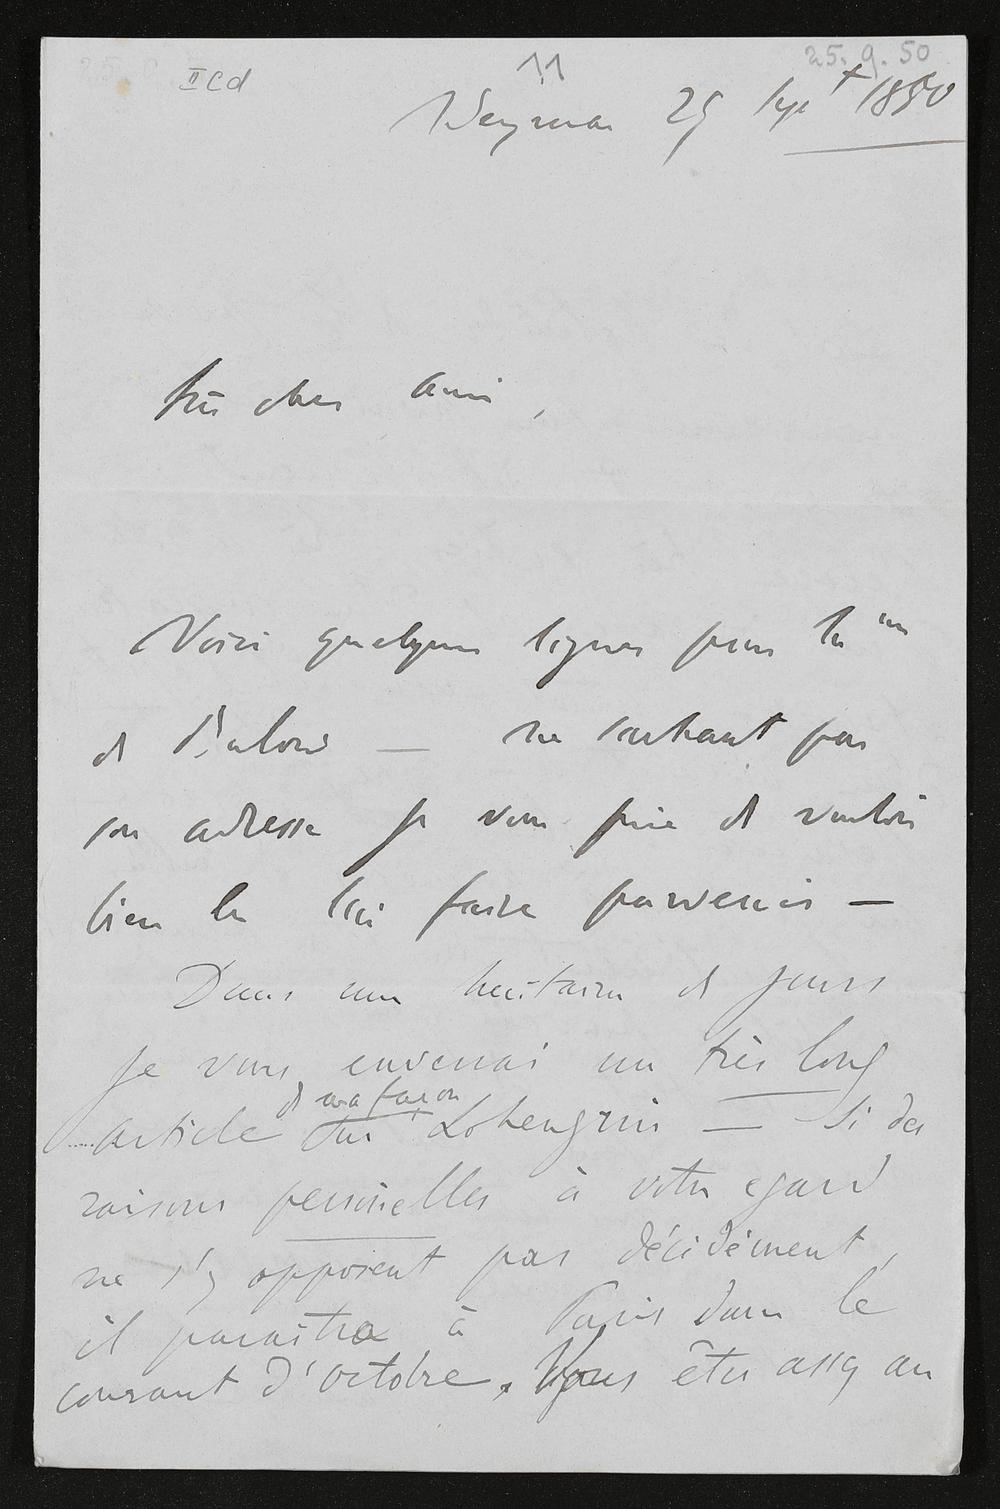 II Cd 11 25.9.50
Weymar 25 Sept 1850
Très cher ami,
Voici quelques lignes pour la
de – ne sachant pas
son adresse je vous prie de vouloir
bien les lui faire parvenir –
Dans une huitaine de jours
je vous enverrai un très long
de ma façon
article sur Lohengrin – Si des
raisons personelles à votre egard
ne s'y opposent pas décidément,
il paraitra à Paris dans le
courant d'octobre. Vous êtes assez au